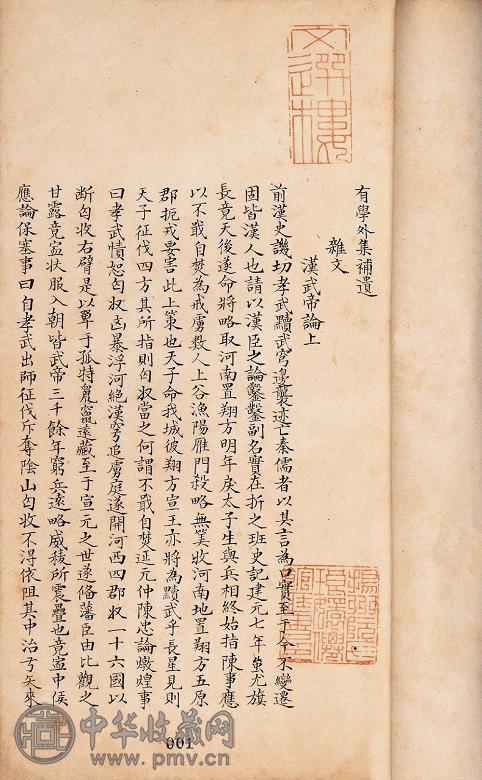 文選樓
有學外集補遺
雜文
漢武帝論上
前漢史譏切孝武黷武窮邊襲迹亡秦儒者以其言為口實至于今不變遷
固皆漢人也請以漢臣之論鑿鑿副名實在折之班史記建元七年蚩尤旗
長竟天後遂命將略取河南置翔方明年戾太子生與兵相終始指陳事應
以不戢自焚為戒虜殺人上谷漁陽雁門殺略無筭收河南地置翔方五原
郡扼戎要害此上策也天子命我城彼翔方宣王亦將為黷武乎長星見則
天子征伐四方其所指則匈奴當之何謂不戢自焚延元仲陳忠論燉煌事
曰孝武憤怒匈奴凶暴浮河絕漢窮追虜庭遂開河西四郡收一十六國以
断匈收右臂是以單于孤特鼠竄遠藏至于宣元之世遂俻藩臣由比觀之
甘露竟寍状服入朝皆武帝三千餘年窮兵遠略威稜所震疊也竟寍中侯
應論保塞事曰自孝武出師征伐斥奪陰山匈收不得依阻其中治弓矢來
001
中华收藏网
www.pmv.cn